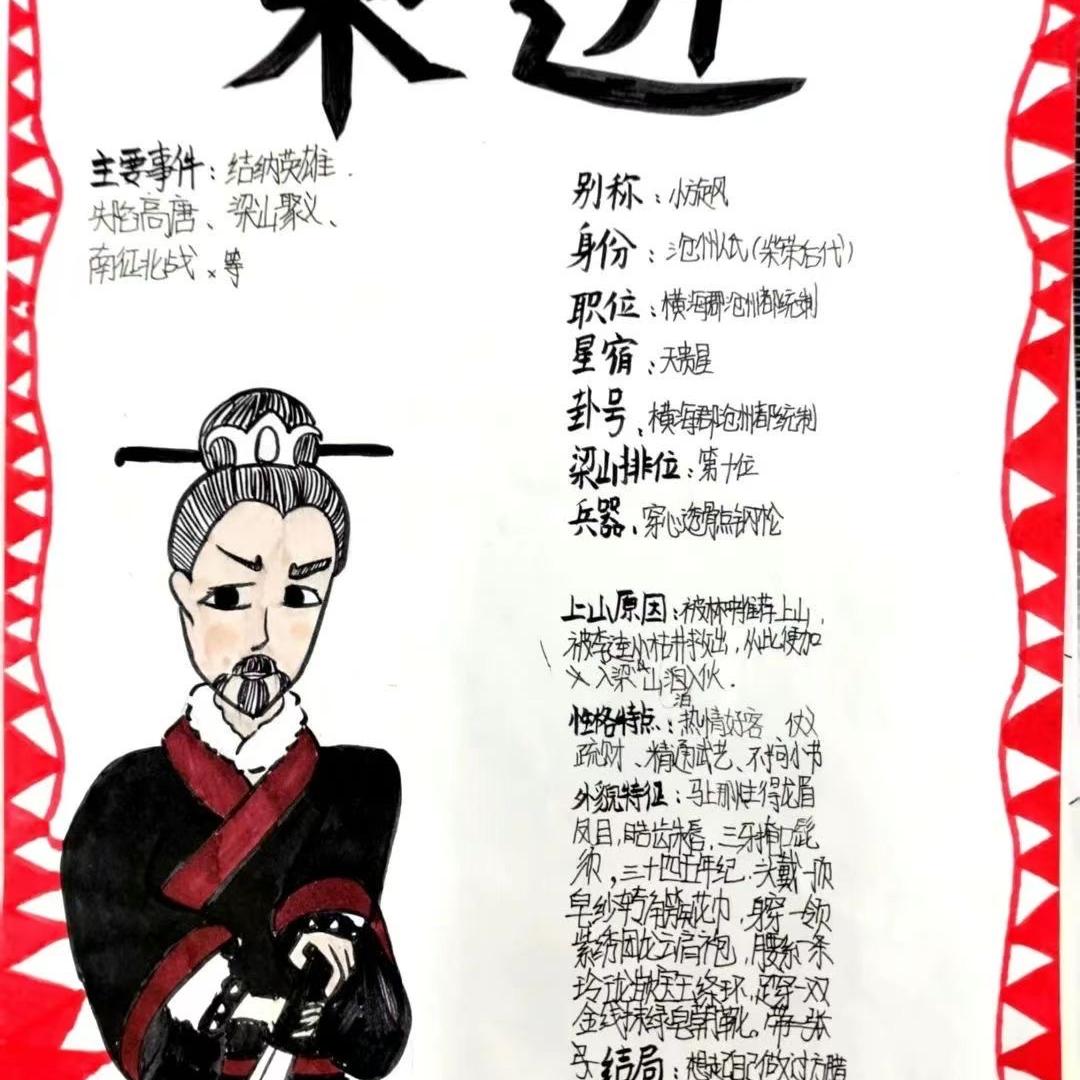 柴进
主要事件：结纳英雄.
失陷高唐、梁山聚义、
南征北战、等
别称：小旋风
身份：沧州人氏(柴荣后代)
职位：横海郡沧州都统制
星宿：天贵星
卦号：横海郡沧州都统制
梁山排位：第十位
兵器：穿心透骨点钢枪
上山原因：被林冲推荐上山,
被李逵从枯井救出，从此便加
入梁山泊入伙.
泊
性格特点：热情好客 仗义
疏财、精通武艺、不拘小节
外貌特征：马上那人生得龙眉
凤目，皓齿朱唇，三牙掩口髭
须，三十四五年纪.头戴一顶
皂纱转角簇花巾，身穿一领
紫绣团龙云肩袍，腰系一条
玲珑嵌宝玉绦环，足穿一双
金线抹绿皂朝靴。带一张
弓
结局：想起自己做过方腊